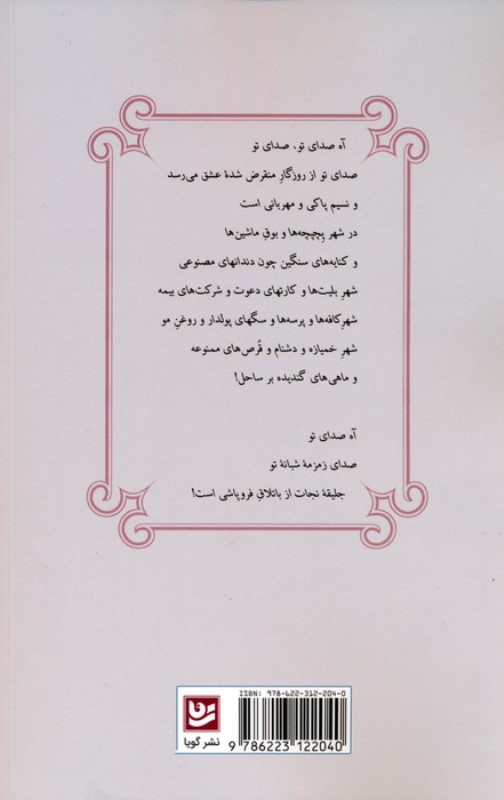 آه صدای تو، صدای تو
صدای تو از روزگارِ منقرض شدهٔ عشق می‌رسد
و نسیم پاکی و مهربانی است
در شهر پچپچه‌ها و بوقِ ماشین‌ها
و کنایه‌های سنگین چون دندانهای مصنوعی
شهرِ بلیت‌ها و کارتهای دعوت و شرکت‌های بیمه
شهرِ کافه‌ها و پرسه‌ها و سگهای پولدار و روغنِ مو
شهرِ خمیازه و دشنام و قُرص‌های ممنوعه
و ماهی‌های گندیده بر ساحل!
آه صدای تو
صدای زمزمهٔ شبانهٔ تو
جلیقهٔ نجات از باتلاقِ فروپاشی است!
ISBN: 978-622-312-204-0
9 786223 122040
نشر گویا